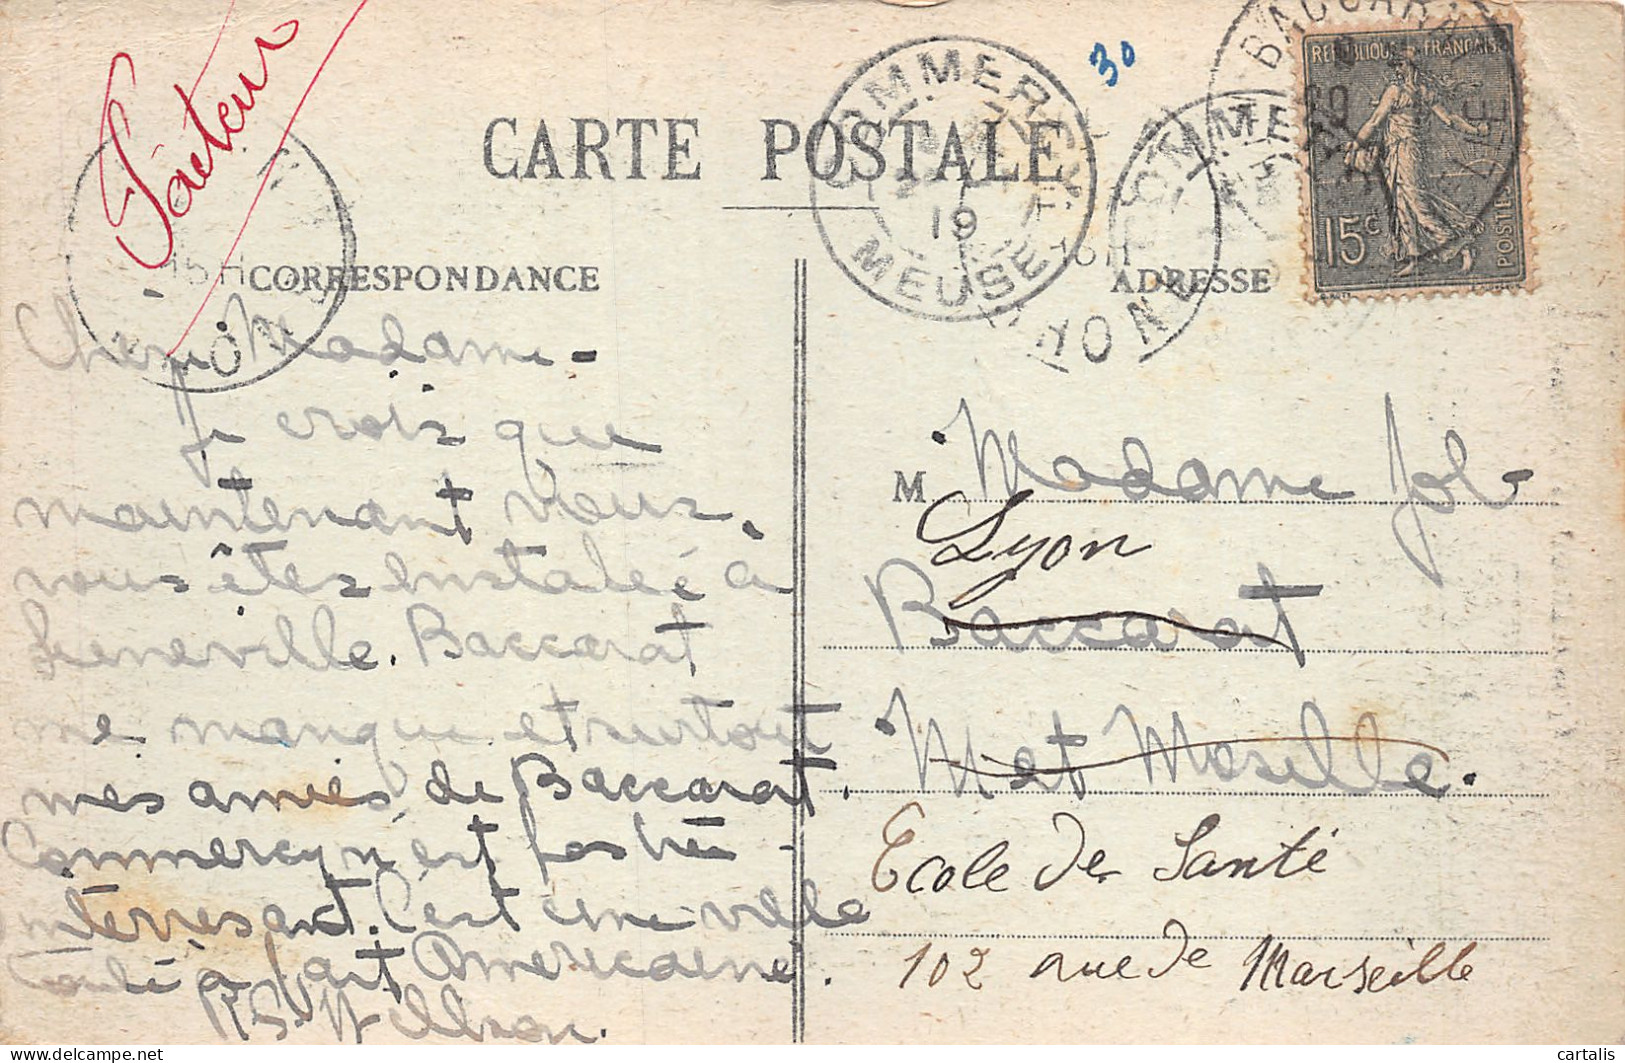 Facteur
30
CARTE POSTALE
COMMERCY
19
MEUSE
COMMERCY
BACCARAT
RHONE
REPUBLIQUE FRANÇAISE
15c
POSTES
15H
CORRESPONDANCE
ADRESSE
Chere Madame -
Je crois que
maintenant vous
vous êtes instaleé à
Leneville. Baccarat
me manque et surtout
mes amies de Baccarat.
Commercy n'est pas très
intérresant. C'est une ville
a fait Americaine.
R.S. Willson.
M Madame Jol-
Lyon
Baccarat
M et Moselle.
Ecole de Santé
102 rue de Marseille
cartalis
delcampe.net